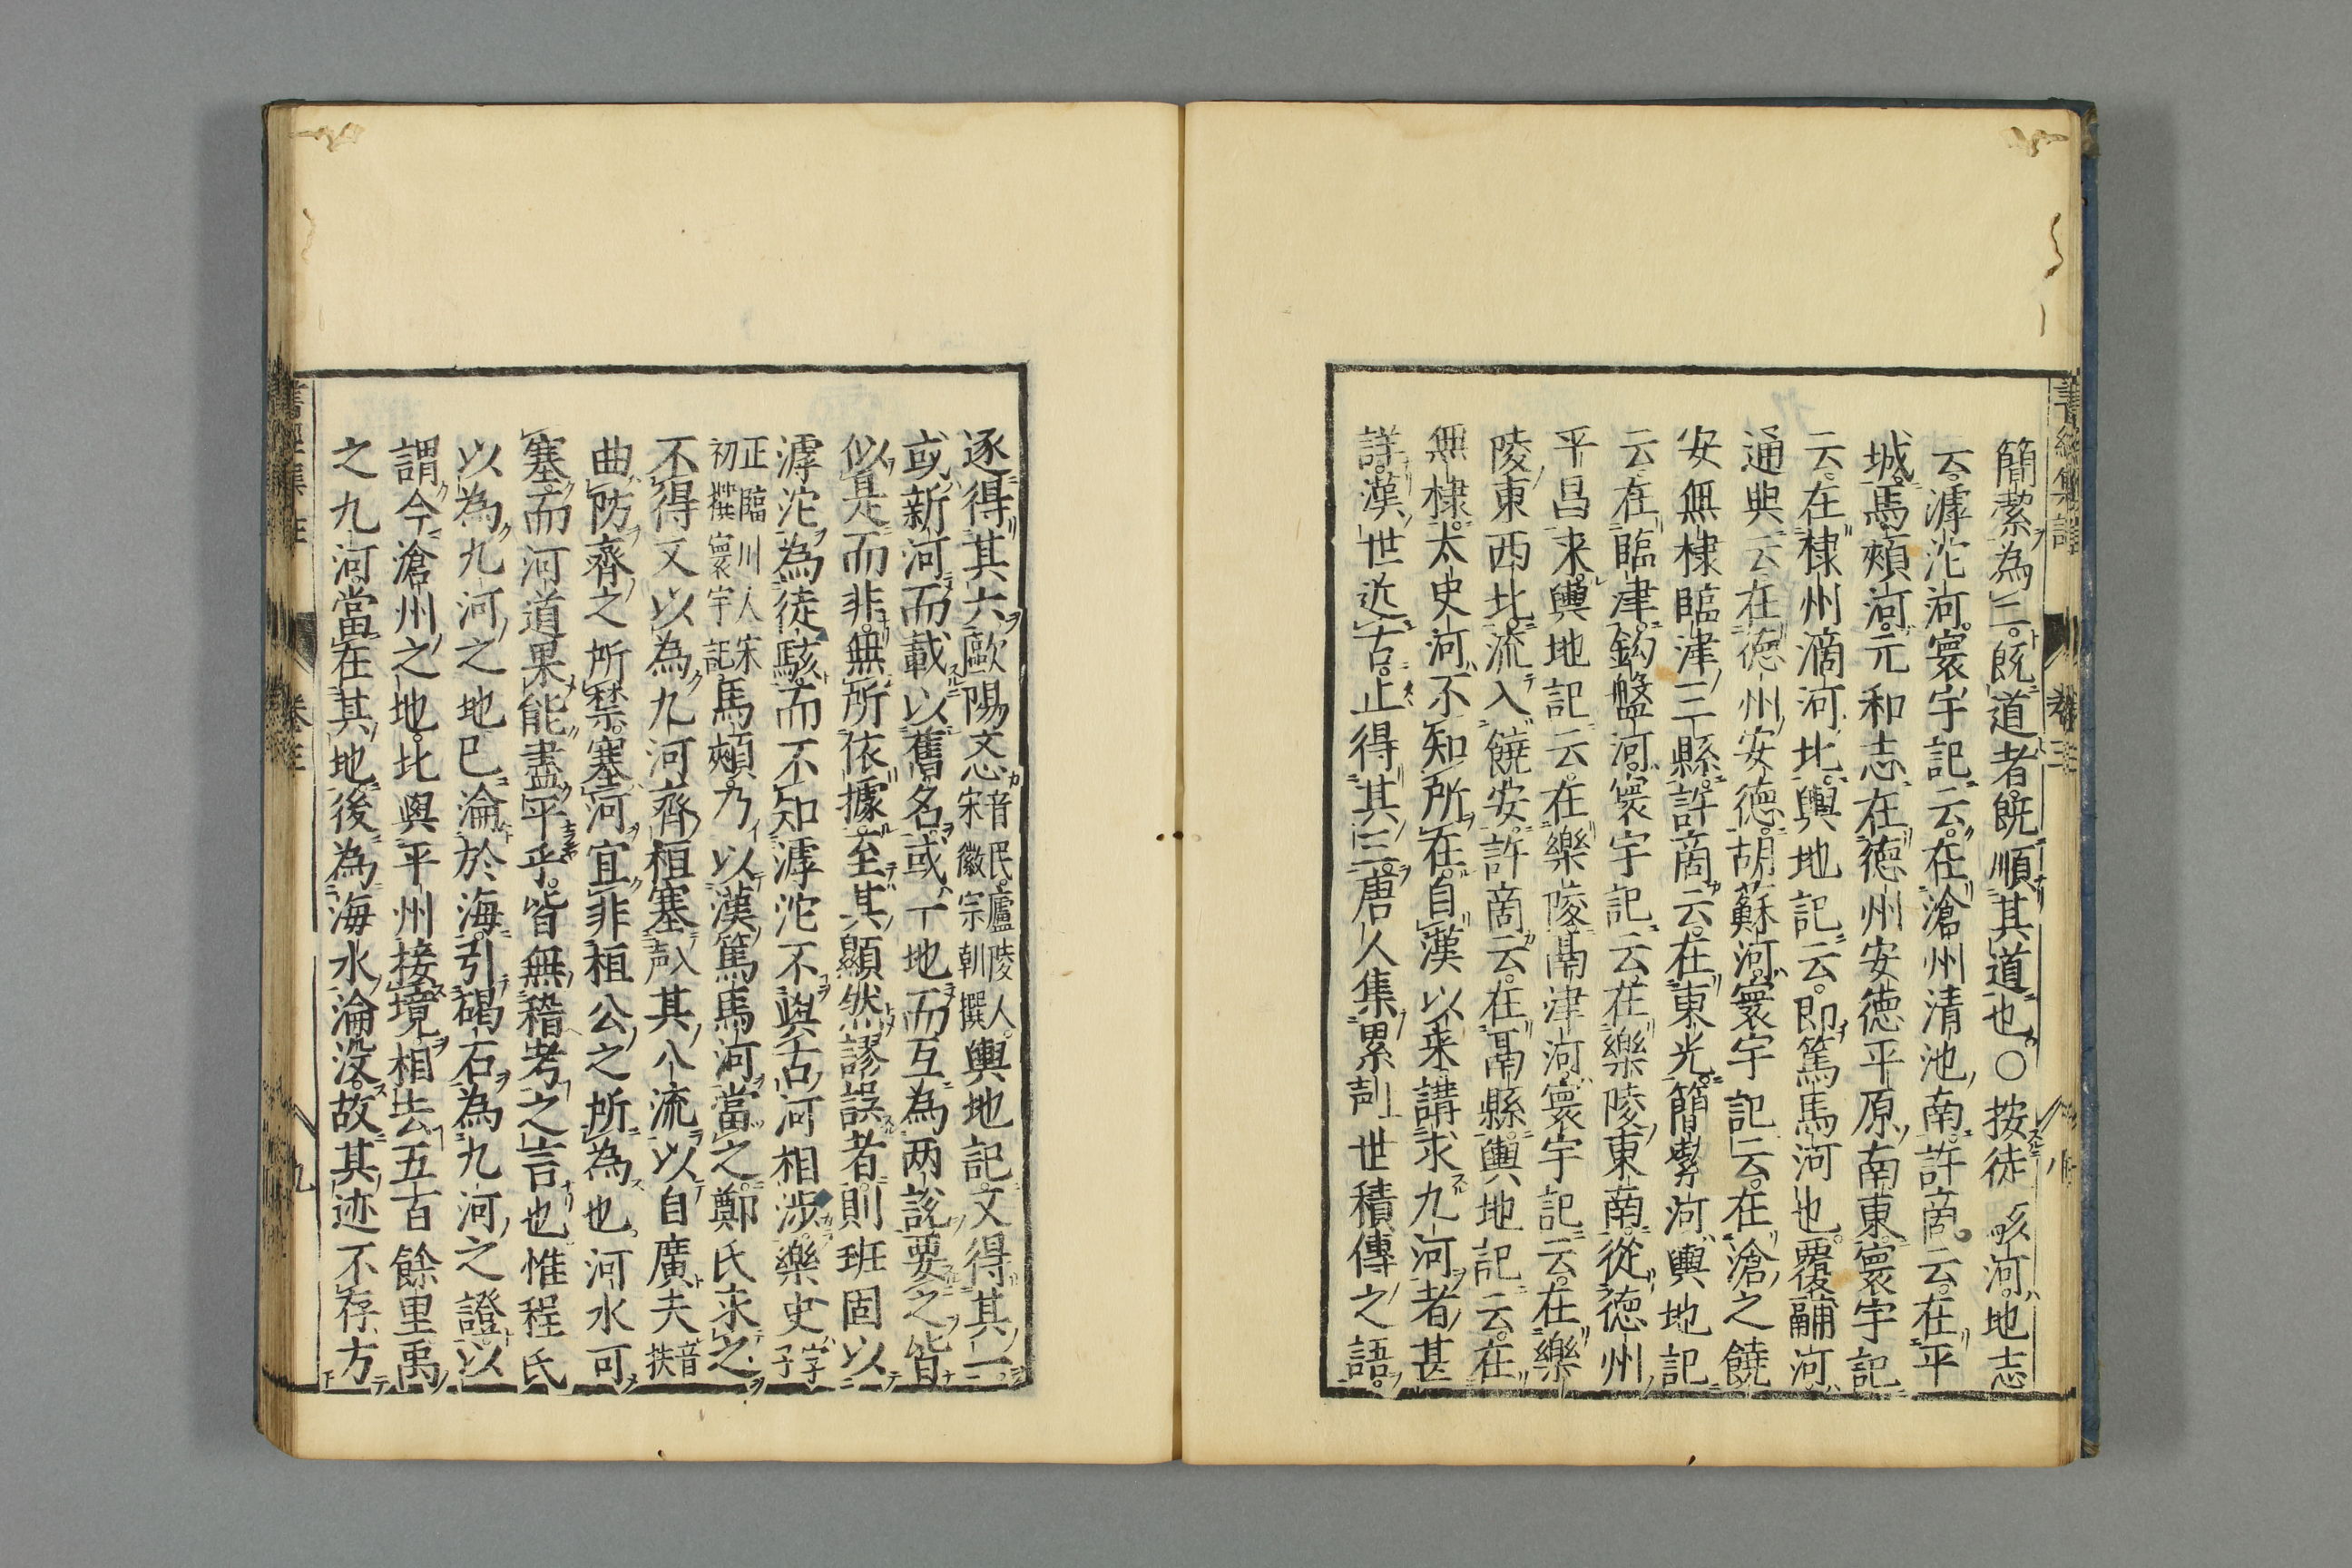 簡潔為二既道者既順其道也〇按徒駭河地志
云滹沱河寰宇記云在滄州清池南許商云在平
城馬頰河元和志在徳州安徳平原南東寰宇記
云在棣州滴河北輿地記云即篤馬河也覆鬴河
通典云在徳州安徳胡蘇河寰宇記云在滄之饒
安無棣臨津三縣許商云在東光簡潔河輿地記
云在臨津鈎盤河寰宇記云在樂陵東南從徳州
平昌来輿地記云在樂陵鬲津河寰宇記云在樂
陵東西北流入饒安許商云在鬲縣輿地記云在
無棣太史河不知所在自漢以来講求九河者甚
詳漢世近古止得其三唐人集累世積傳之語
遂得其六歐陽忞音民廬陵人宋徽宗朝撰輿地記又得其一
或新河而載以舊名或一地而互為两説要之皆
似是而非無所依據至其顯然謬誤者則班固以
滹沱為徒駭而不知滹沱不與古河相渉樂史字子
正臨川人宋初撰寰宇記馬頰乃以漢篤馬河當之鄭氏求之
不得又以為九河齊桓塞入声其八流以自廣夫音扶
曲防齊之所禁塞河宜非桓公之所為也河水可
塞而河道果能盡平乎皆無稽考之言也惟程氏
以為九河之地已淪於海引碣石為九河之證以
謂今滄州之地北與平州接境相去五百餘里禹
之九河當在其地後為海水淪没故其迹不存方
書經集註
卷三
九